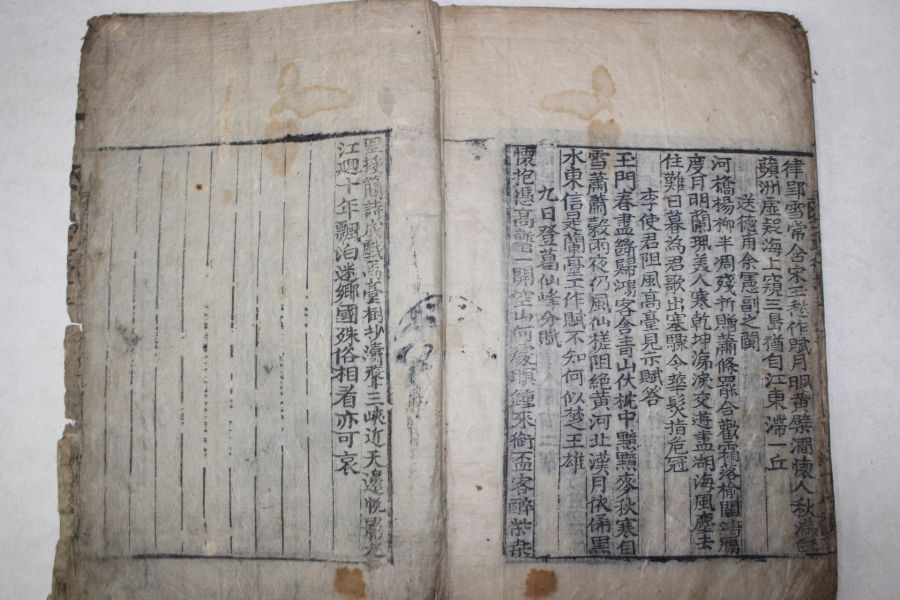 律郢雪常含宋玉愁作賦月明黃壁濶懷人秋滿
蘋洲虛疑海上窺三島猶自江東滯一丘
送德用余憲副之閩
河橋楊柳半凋殘祈贈蕭條罷合歡霜落榆關鴻鴈
度月明蘭珮美人寒乾坤涕淚交遊盡湖海風塵去
住難日暮為君歌出塞驟令華髮指危冠
李使君阻風高臺見示賦答
玉門春盡歸鴻客舍青山伏枕中黯黯麥秋寒自
雪蕭蕭穀雨夜仍風仙槎阻絕黃河北漢月依俙黑
水東信是蘭臺工作賦不知何似楚王雄
九日登葛仙峰分賦
懷抱憑高暫一開空山何處暝鍾來銜盃客醉茱
授簡詩成戱馬臺樹抄濤聲三峽近天邊帆影九
江廻十年飄泊迷鄉國殊俗相看亦可哀